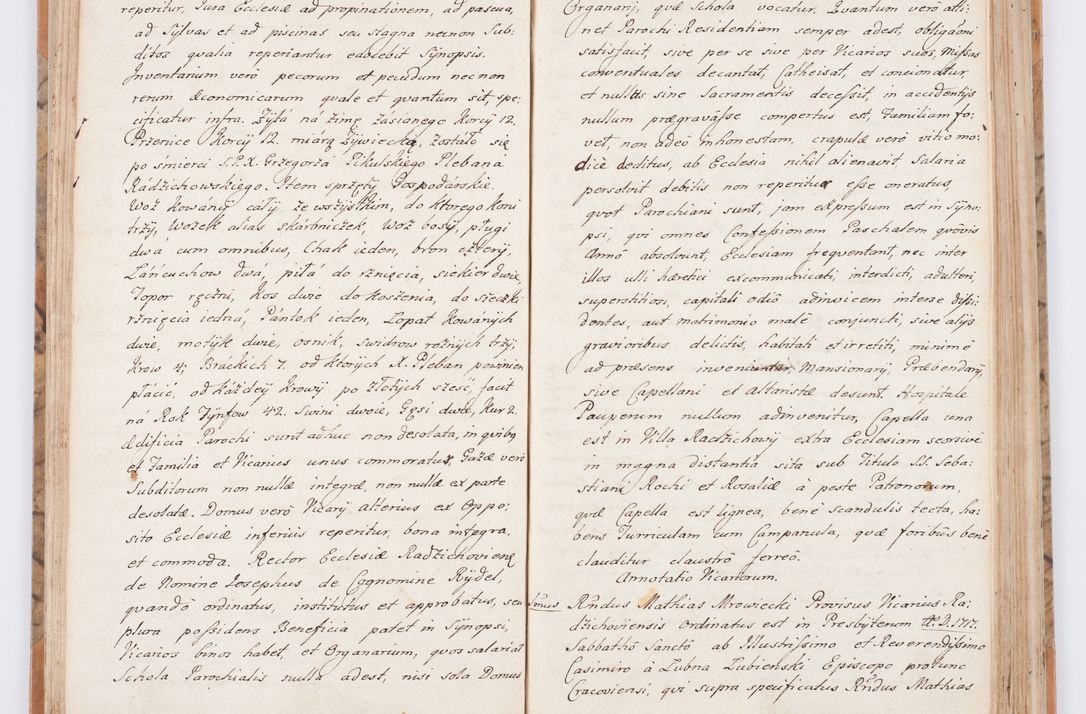 reperitur, Jura Ecclesiæ ad propinationem, ad pascua,
ad Sylvas et ad piscinas seu stagna necnon Sub:
ditos qualia reperiantur edocebit Synopsis.
Inventarium verò pecorum et pecudum nec non
rerum œconomicarum quale et quantum sit, spe:
cificatur infra. Zyta ná zimę zásianego Korcy 12.
Przenice Korcy 12. miárą Zywiecką, zostáło się
po śmierci S.P.X. Grzegorzá Pikulskiego Plebaná
Rádzichowskiego. Item sprzęty Gospodárskie.
Woz Kowány cáły ze wszystkim, do ktorego Koni
trzy, Wozek alias skárbniczek, Woz bosy, pługi
dwá cum omnibus, Chak ieden, bron cztery,
Láńcuchow dwá, piłá do rznięcia, siekier dwie,
Topor ręczni, Kos dwie do Koszenia, do sieczki
rznięcia iedná, Pántok ieden, Lopat Kowánych
dwie, motyk dwie, osnik, swidrow roźnych trzy,
Krow 4; Bráckich 7. od ktorych X. Pleban powinien
płácić, od Káżdey Krowy po złotych sześć, facit
ná Rok Tynfow 42. Swini dwoie, Gęsi dwie, Kur 2.
Ædificia Parochi sunt adhuc non desolata, in quibq
et Familia et Vicarius unus commoratur, Gazæ verò
Subditorum non nullæ integræ, non nullæ ex parte
desolatæ. Domus verò Vicary alterius ex Oppo:
sito Ecclesiæ inferiùs reperitur, bona integra,
et commoda. Rector Ecclesiæ Radzichoviens
de Nomine Josephus de Cognomine Rydel,
quandò ordinatus, institutus et approbatus, seu
plura possidens Beneficia patet in Synopsi,
Vicarios binos habet, et Organarium, quos salariat
Schola Parochialis nulla adest, nisi sola Domus
Organarij, quæ Schola vocatur. Quantum verò atti:
net Parochi Residentiam semper adest, obligaoni
satisfacit, sive per se sive per Vicarios suos, Missas
conventuales decantat, Catheisat, et concionatur,
et nullus sine Sacramentis decessit, in accidentijs
nullum prægravásse compertus est, Familiam fo:
vet, non adeò inhonestam, crapulæ verò vitio mo:
dicè deditus, ab Ecclesia nihil alienavit Salaria
persolvit debitis non reperitur esse oneratus,
quot Parochiani sunt, jam expressum est in Syno:
psi, qui omnes Confessionem Paschalem quovis
Annô absolvunt, Ecclesiam frequentant, nec inter
illos ulli hæretici excommunicati, interdicti, adulteri,
superstitiosi, capitali odiô adinvicem interse dissi:
dentes, aut matrimonio malè conjuncti, sive alijs
gravioribus delictis, habitati et irretiti, minimè
ad præsens inveniuntur, Mansionarij, Prævendarij,
sive Capellani et Altaristæ desunt. Hospitale
Pauperum nullum adinvenitur, Capella una
est in Villa Radzichowy extra Ecclesiam seorsivè
in magna distantia sita sub Titulo SS. Seba:
stiani Rochi et Rosaliæ à peste Patronorum,
quæ Capella est lignea, benè scandulis tecta, ha:
bens Turriculam cum Campanula, quæ foribus benè
clauditur claustrô ferreô.
Annotatio Vicariorum.
Rndus Mathias Mrowiecki Provisus Vicarius Ra:
dzichoviensis Ordinatus est in Presbyterum A. D. 1717.
Sabbathô Sanctô ab Illustrissimo et Reverendissimo
Casimiro à Lubna Lubienski Episcopo protunc
Cracoviensi, qui supra specificatus Rndus Mathias